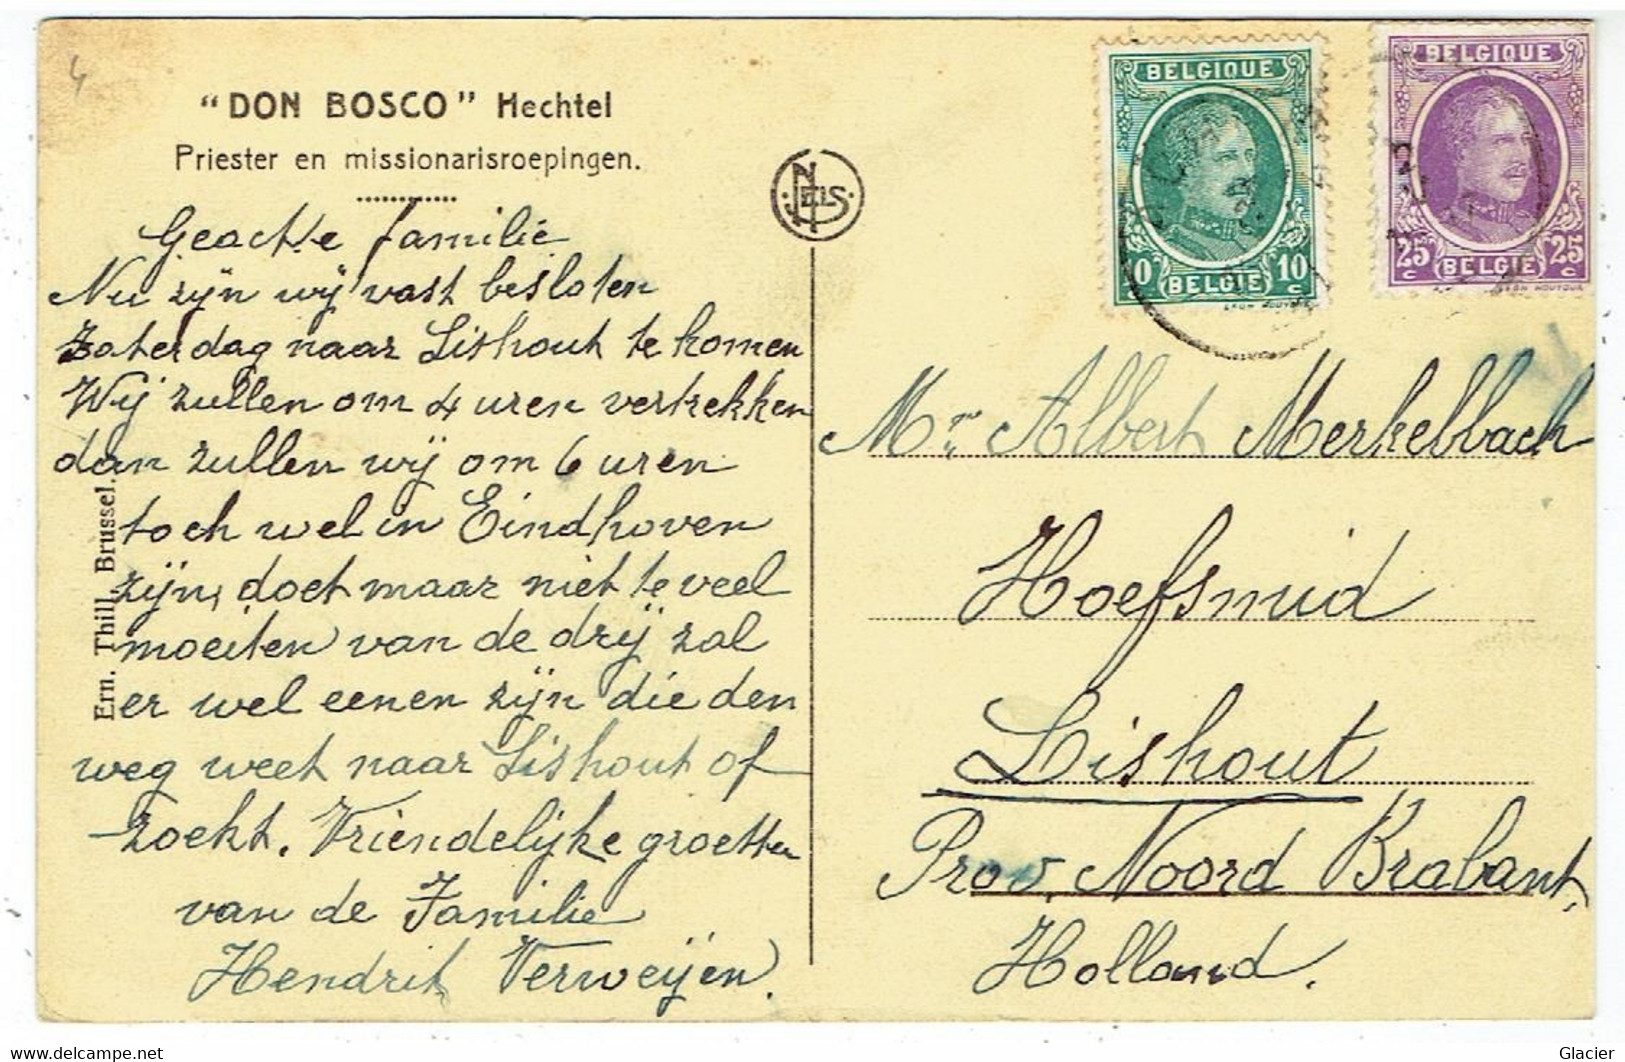 4
"DON BOSCO" Hechtel
Priester en missionarisroepingen.
Geachte familie
Nu zijn wij vast besloten
Zaterdag naar Lishout te komen
Wij zullen om 4 uren vertrekken
dan zullen wij om 6 uren
toch wel in Eindhoven
zijn, doet maar niet te veel
moeiten van de drij zal
er wel eenen zijn die den
weg weet naar Lishout of
zoekt. Vriendelijke groetten
van de Familie
Hendrik Verweijen.
Ern. Thill, Brussel.
NELS
BELGIQUE
10 BELGIE 10
c c
LEON HOUYOUX
BELGIQUE
25 BELGIE 25
c c
LEON HOUYOUX
Mr Albert Merkelbach
Hoefsmid
Lishout
Prov. Noord Brabant,
Holland.
Glacier
www.delcampe.net